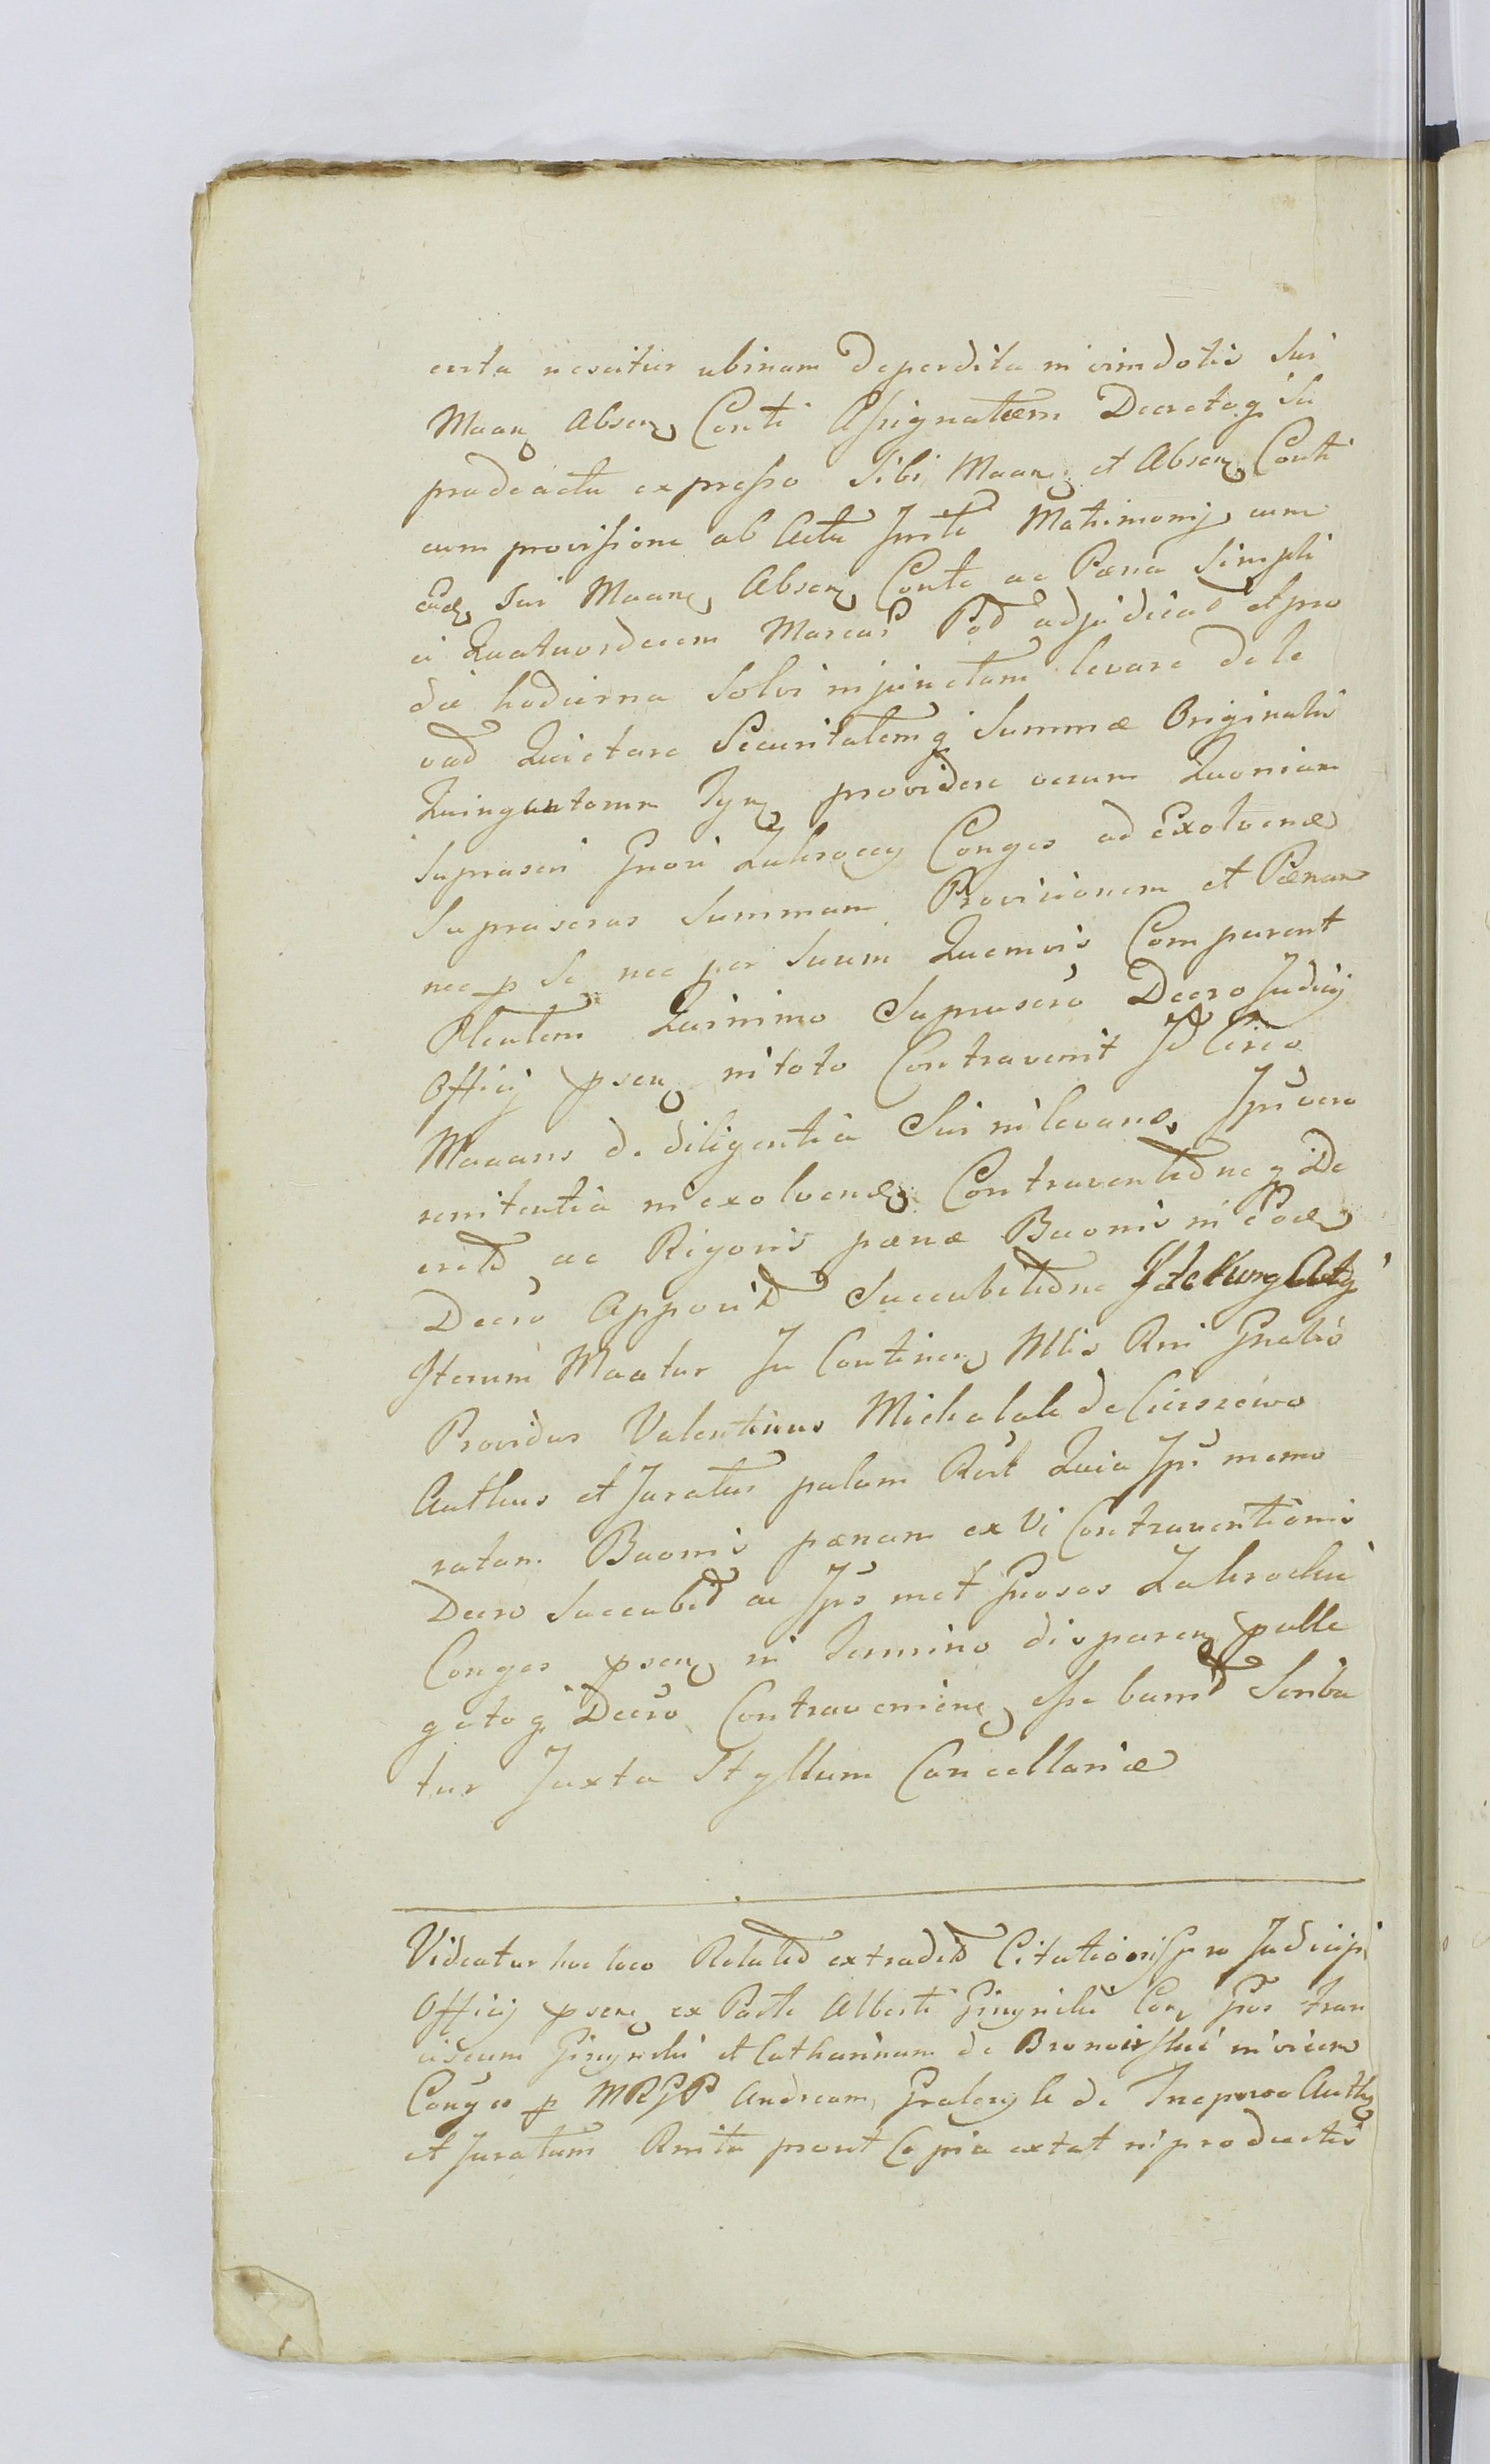 certa nescitur ubinam deperdita in vim dotis Sui
Maan Absen Conti Assignatam Decretoq Su
pradeactu expresso Sibi Maan et Absen Conti
cum provisione ab Actu Initi Matrimonij cum
Ead Sui Maan Absen Conte ac Pæna Simpli
ci Quatuordecem Marcar Pod adjudicat et pro
die hodierna Solvi injunctam levare de le
vad Quietare Securitatemq Summæ Originalis
Quingentorum Tyn providere verum Quoniam
Suprascri Gnosi Zakroccy Conges ad Exolvend
Suprascras Summam Provisionem et Pænam
nec p Se nec per Suum Quemvis Comparent
Plentem Quinimo Suprascro Decro Judicij
Officij psen in toto Contravenit Id Circo
Maaans de diligentia Sui in levand Ipi vero
renitentia in exolvend Contraventioneq De
creti ac Rigoris pænæ Baonis in Eod
Decro Apposit Succubitione
Iterum Maatur In Continen Mtis Rni Gnalis
Providus Valentinus Michalak de Cierszewo
Authus et Juratus palam Rert Quia Ips memo
ratam Baonis pænam ex Vi Contraventionis
Decro Succubit ac Ips met Gnosos Zakrockie
Conges psen in Termino disparen palle
gatoq Decro Contravenien esse bannit Scriba
tur Juxta Styllum Cancellariæ
Videatur hoc loco Relatio extradit Citationis pro Judicijs
Officij psen ex Parte Alberti Con Gos Fran
ciscum et Catharinam de invicem
Conges p MRGP Andream de Authen
et Juratum Rnita prout Copia extat in productis